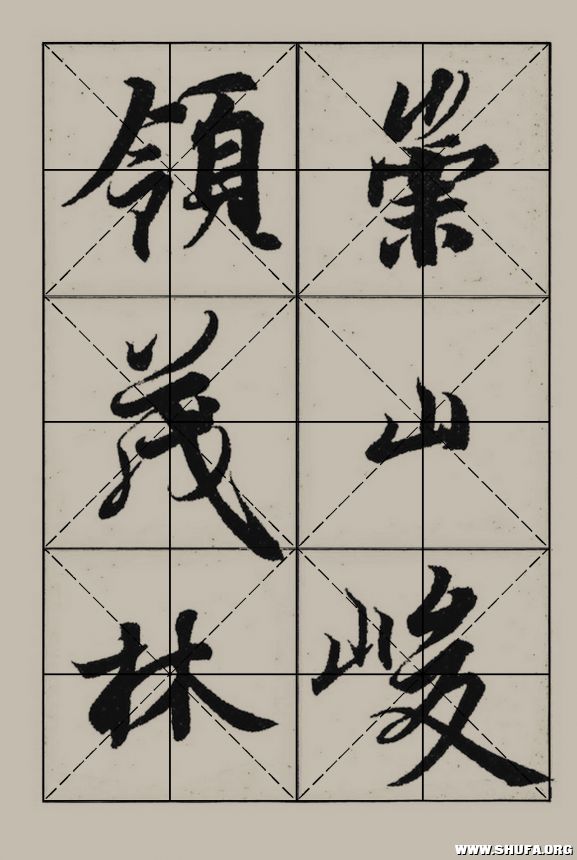 崇山峻
領茂林
WWW.SHUFA.ORG